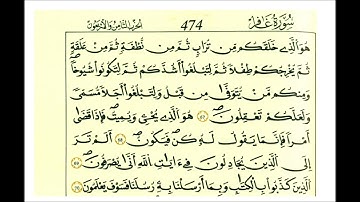 سُورَةُ غَافِر 474 الحزب الثامن والأربعون
هُوَ ٱلَّذِي خَلَقَكُم مِّن تُرَابٖ ثُمَّ مِن نُّطۡفَةٖ ثُمَّ مِنۡ عَلَقَةٖ
ثُمَّ يُخۡرِجُكُمۡ طِفۡلٗا ثُمَّ لِتَبۡلُغُوٓاْ أَشُدَّكُمۡ ثُمَّ لِتَكُونُواْ شُيُوخٗا
وَمِنكُم مَّن يُتَوَفَّىٰ مِن قَبۡلُ وَلِتَبۡلُغُوٓاْ أَجَلٗا مُّسَمّٗى
وَلَعَلَّكُمۡ تَعۡقِلُونَ هُوَ ٱلَّذِي يُحۡيِۦ وَيُمِيتُ فَإِذَا قَضَىٰٓ
أَمۡرٗا فَإِنَّمَا يَقُولُ لَهُۥ كُن فَيَكُونُ أَلَمۡ تَرَ
إِلَى ٱلَّذِينَ يُجَٰدِلُونَ فِيٓ ءَايَٰتِ ٱللَّهِ أَنَّىٰ يُصۡرَفُونَ
ٱلَّذِينَ كَذَّبُواْ بِٱلۡكِتَٰبِ وَبِمَآ أَرۡسَلۡنَا بِهِۦ رُسُلَنَا فَسَوۡفَ يَعۡلَمُونَ